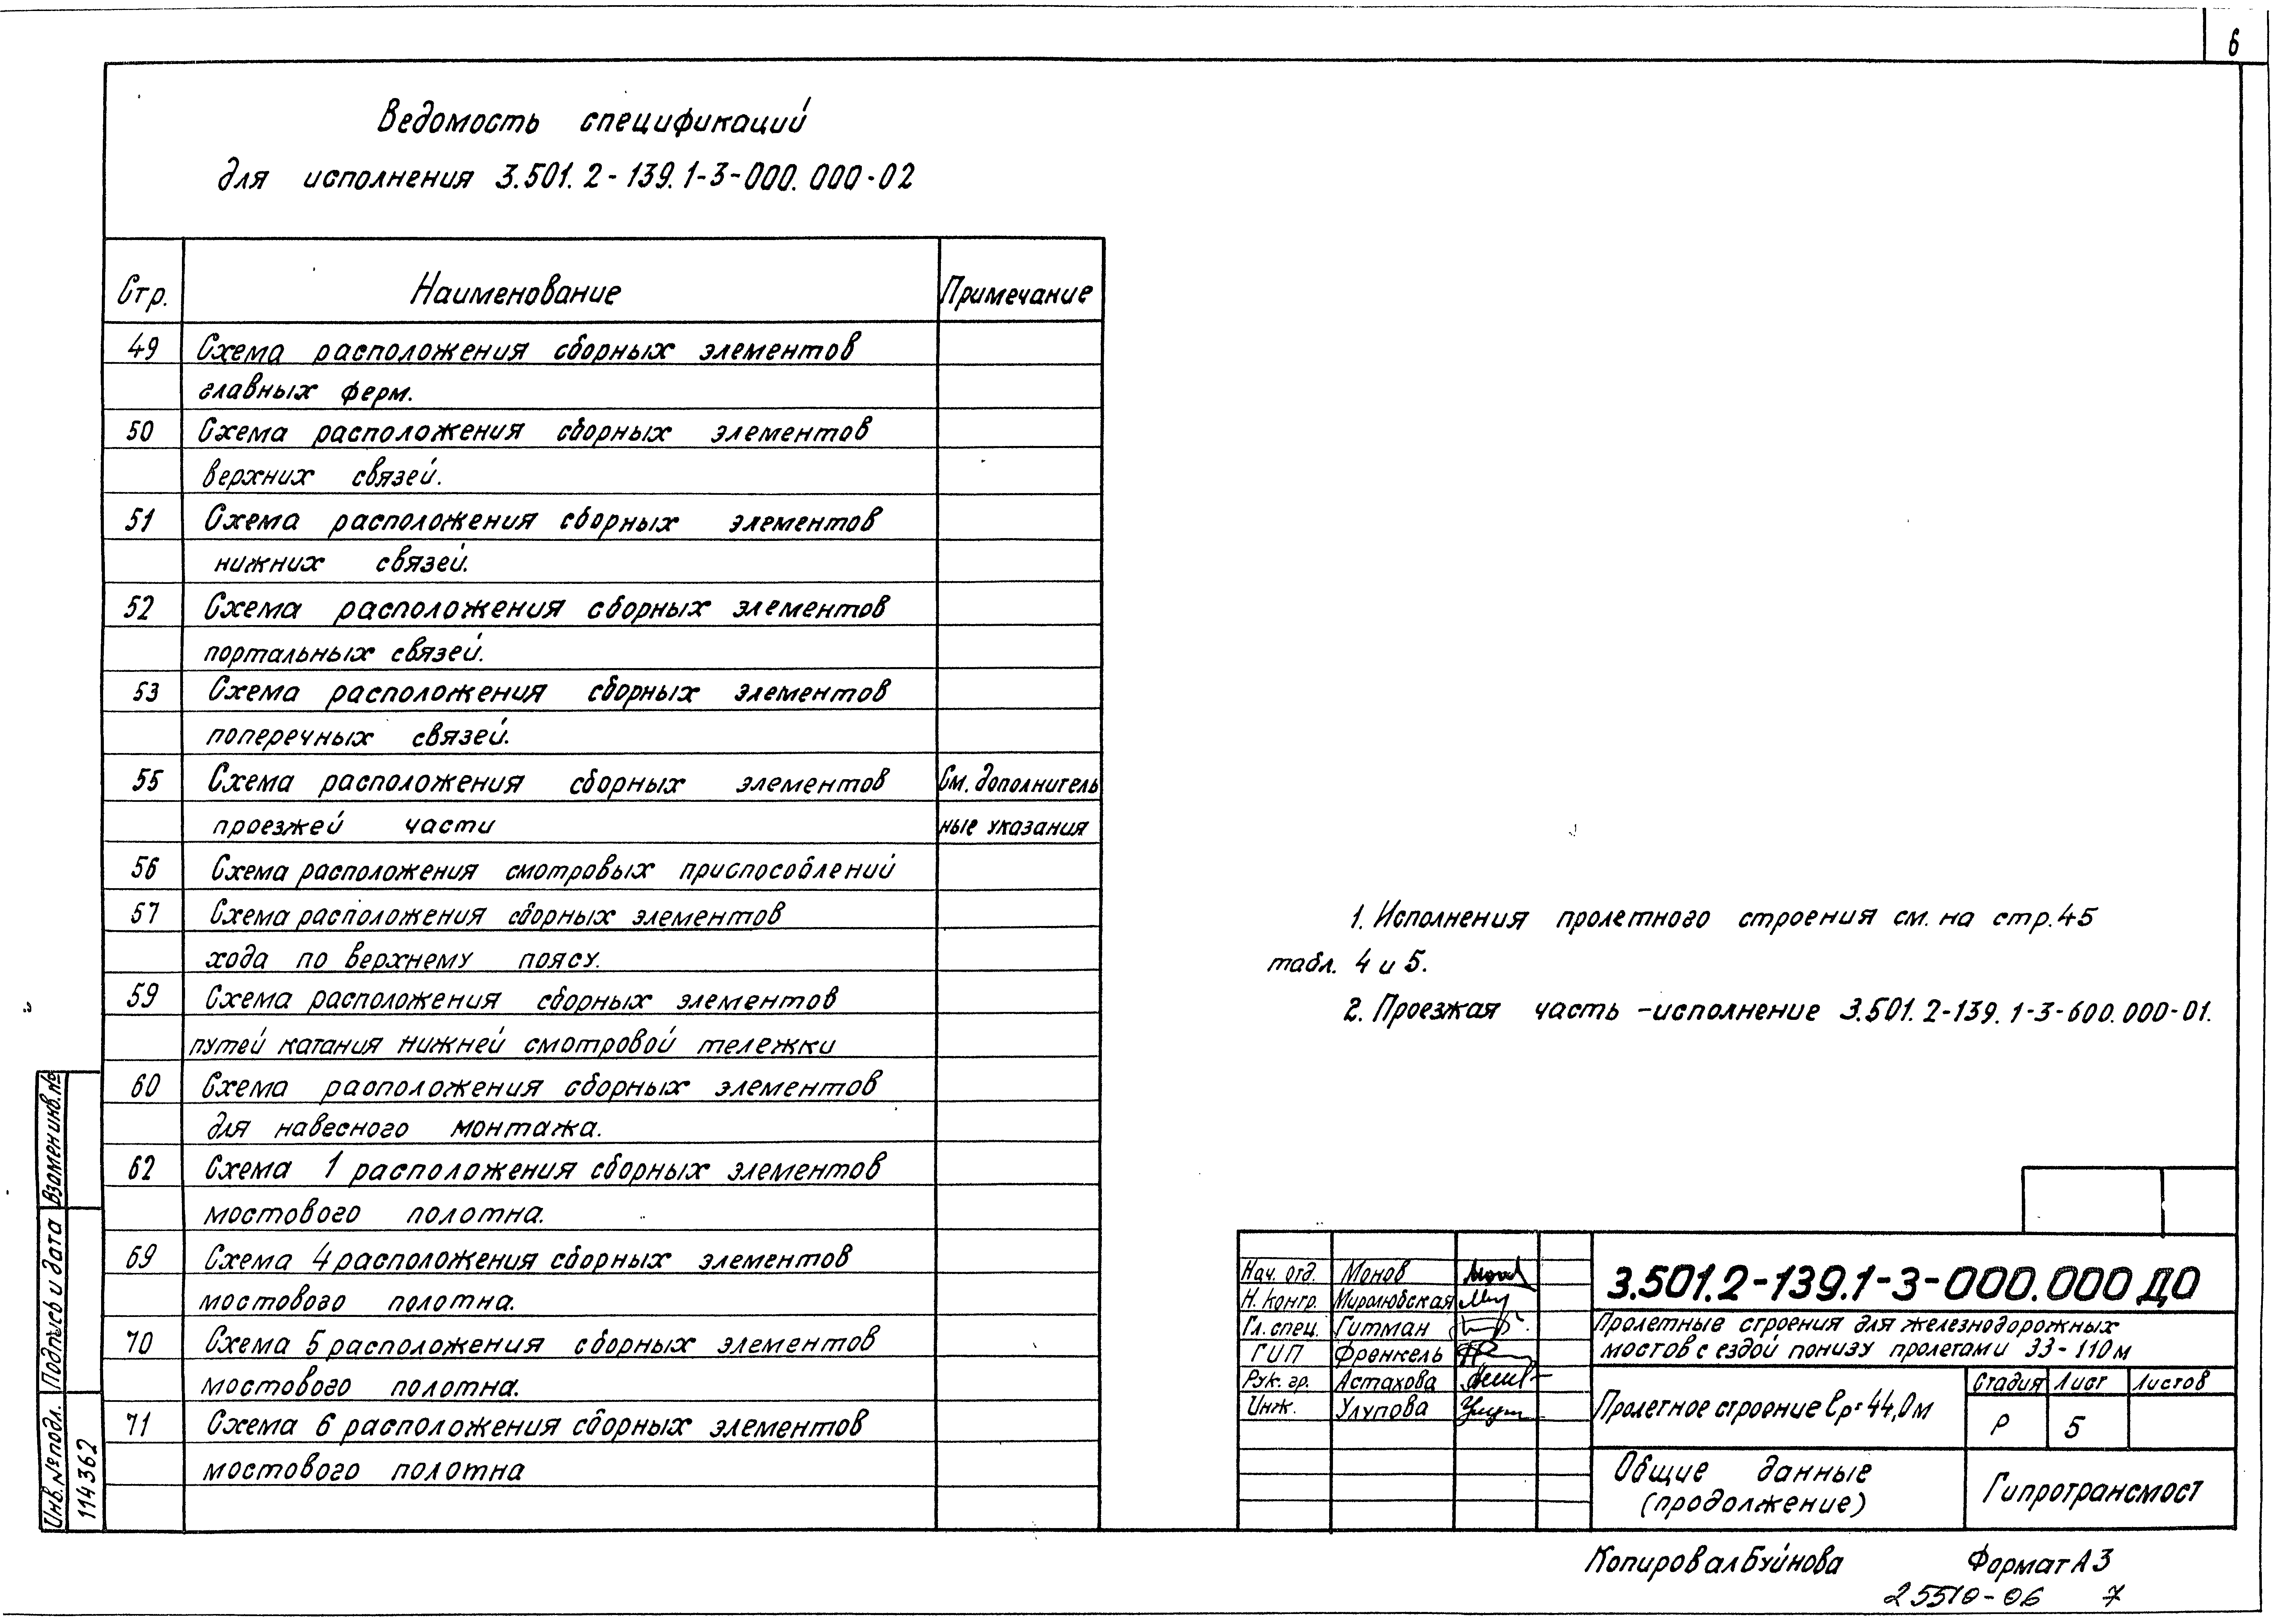 6
Ведомость спецификаций
для исполнения 3.501.2-139.1-3-000.000-02
Стр. Наименование Примечание
49 Схема расположения сборных элементов
главных ферм.
50 Схема расположения сборных элементов
верхних связей.
51 Схема расположения сборных элементов
нижних связей.
52 Схема расположения сборных элементов
портальных связей.
53 Схема расположения сборных элементов
поперечных связей.
55 Схема расположения сборных элементов См. дополнитель
проезжей части ные указания
56 Схема расположения смотровых приспособлений
57 Схема расположения сборных элементов
хода по верхнему поясу.
59 Схема расположения сборных элементов
путей катания нижней смотровой тележки
60 Схема расположения сборных элементов
для навесного монтажа.
62 Схема 1 расположения сборных элементов
мостового полотна.
69 Схема 4 расположения сборных элементов
мостового полотна.
70 Схема 5 расположения сборных элементов
мостового полотна.
71 Схема 6 расположения сборных элементов
мостового полотна
1. Исполнения пролетного строения см. на стр. 45
табл. 4 и 5.
2. Проезжая часть – исполнение 3.501.2-139.1-3-600.000-01.
Взамен инв.№
Подпись и дата
Инв.№ подл.
114362
Нач. отд. Монов
Н. контр. Миролюбская
Гл. спец. Гитман
ГИП Френкель
Рук. гр. Астахова
Инж. Улупова
3.501.2-139.1-3-000.000 ДО
Пролетные строения для железнодорожных
мостов с ездой понизу пролетами 33-110 м
Пролетное строение lр=44,0 м
Стадия Лист Листов
Р 5
Общие данные
(продолжение)
Гипротрансмост
Копировал Буйнова Формат А3
25510-06 7